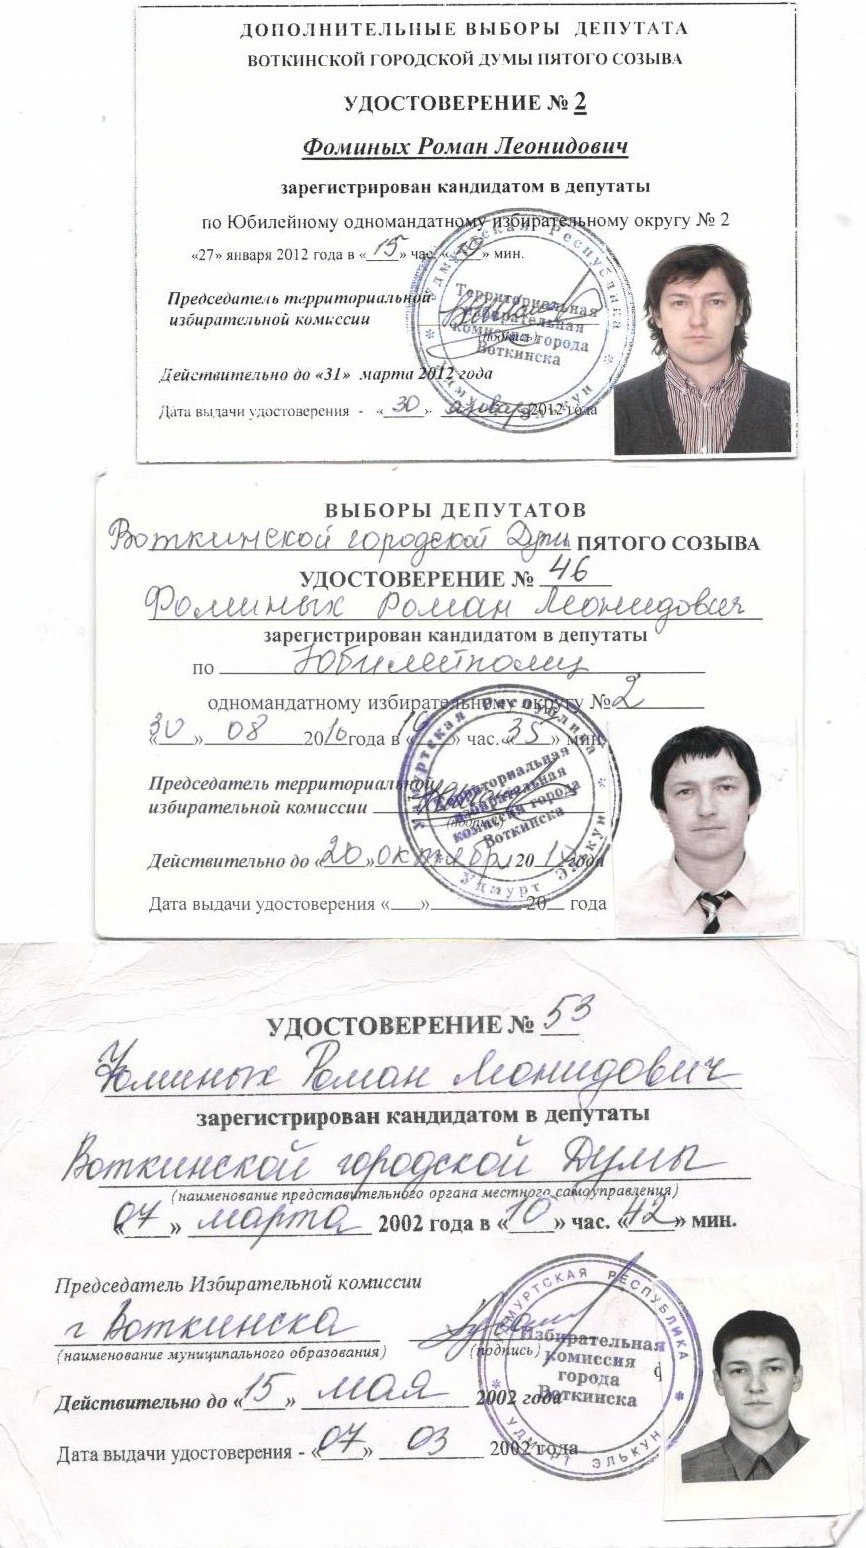 ДОПОЛНИТЕЛЬНЫЕ ВЫБОРЫ ДЕПУТАТА
ВОТКИНСКОЙ ГОРОДСКОЙ ДУМЫ ПЯТОГО СОЗЫВА
УДОСТОВЕРЕНИЕ № 2
Фоминых Роман Леонидович
зарегистрирован кандидатом в депутаты
по Юбилейному одномандатному избирательному округу № 2
«27» января 2012 года в «15» час. «» мин.
Председатель территориальной
избирательной комиссии
(подпись)
Удмуртская Республика
Территориальная
избирательная
комиссия города
Воткинска
Удмурт Элькун
Действительно до «31» марта 2012 года
Дата выдачи удостоверения - «30» января 2012 года
ВЫБОРЫ ДЕПУТАТОВ
Воткинской городской Думы ПЯТОГО СОЗЫВА
УДОСТОВЕРЕНИЕ № 46
Фоминых Роман Леонидович
зарегистрирован кандидатом в депутаты
по Юбилейному
одномандатному избирательному округу № 2
«30» 08 2010 года в «16» час. «35» мин.
Председатель территориальной
избирательной комиссии
(подпись)
Удмуртская Республика
Территориальная
избирательная
комиссия города
Воткинска
Удмурт Элькун
Действительно до «20» октября 2010 года
Дата выдачи удостоверения «» 20 года
УДОСТОВЕРЕНИЕ № 53
Фоминых Роман Леонидович
зарегистрирован кандидатом в депутаты
Воткинской городской Думы
(наименование представительного органа местного самоуправления)
«07» марта 2002 года в «10» час. «42» мин.
Председатель Избирательной комиссии
г Воткинска
(наименование муниципального образования) (подпись)
УДМУРТСКАЯ РЕСПУБЛИКА
Избирательная
комиссия
города
Воткинска
УДМУРТ ЭЛЬКУН
Действительно до «15» мая 2002 года
Дата выдачи удостоверения - «07» 03 2002 года